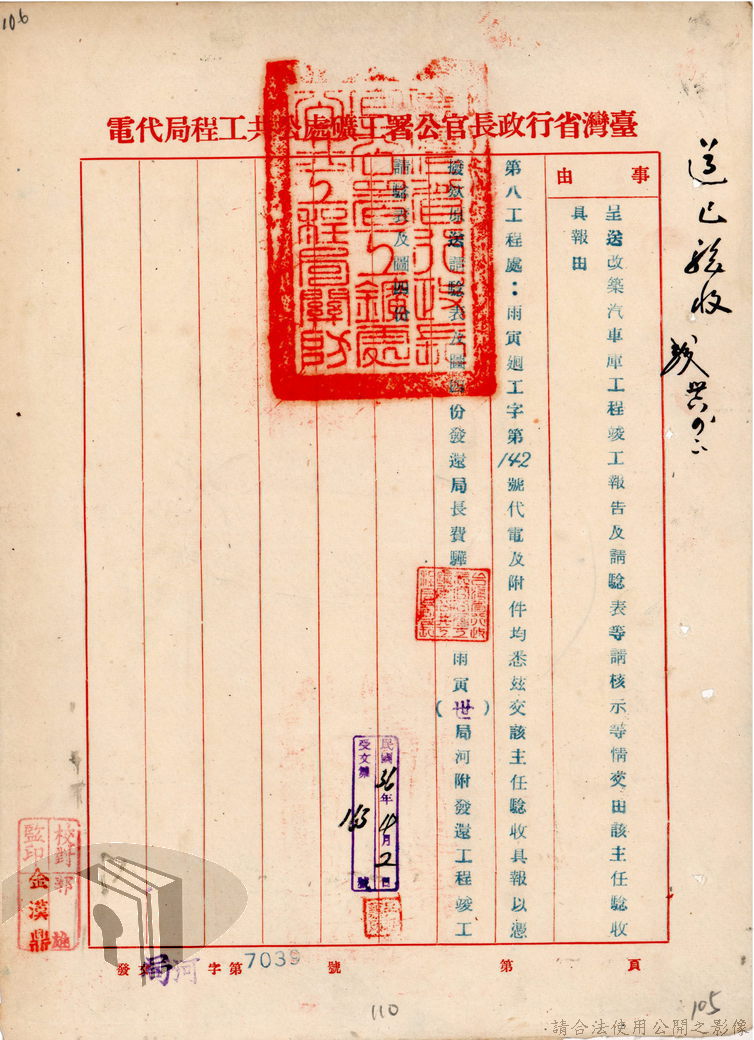 106
臺灣省行政長官公署工礦處公共工程局代電
送已驗收
事由
呈送改築汽車庫工程竣工報告及請驗表等請核示等情交由該主任驗收
具報由
第八工程處：雨寅迴工字第142號代電及附件均悉茲交該主任驗收具報以憑
核辦原送請驗表及圖四份發還局長費驊
雨寅(卅)局河附發還工程竣工
請驗表及圖四份
民國36年4月2日
受文第
163
號
校對
監印金漢鼎
發文
局河
字第7039號
第 頁
110
105
請合法使用公開之影像